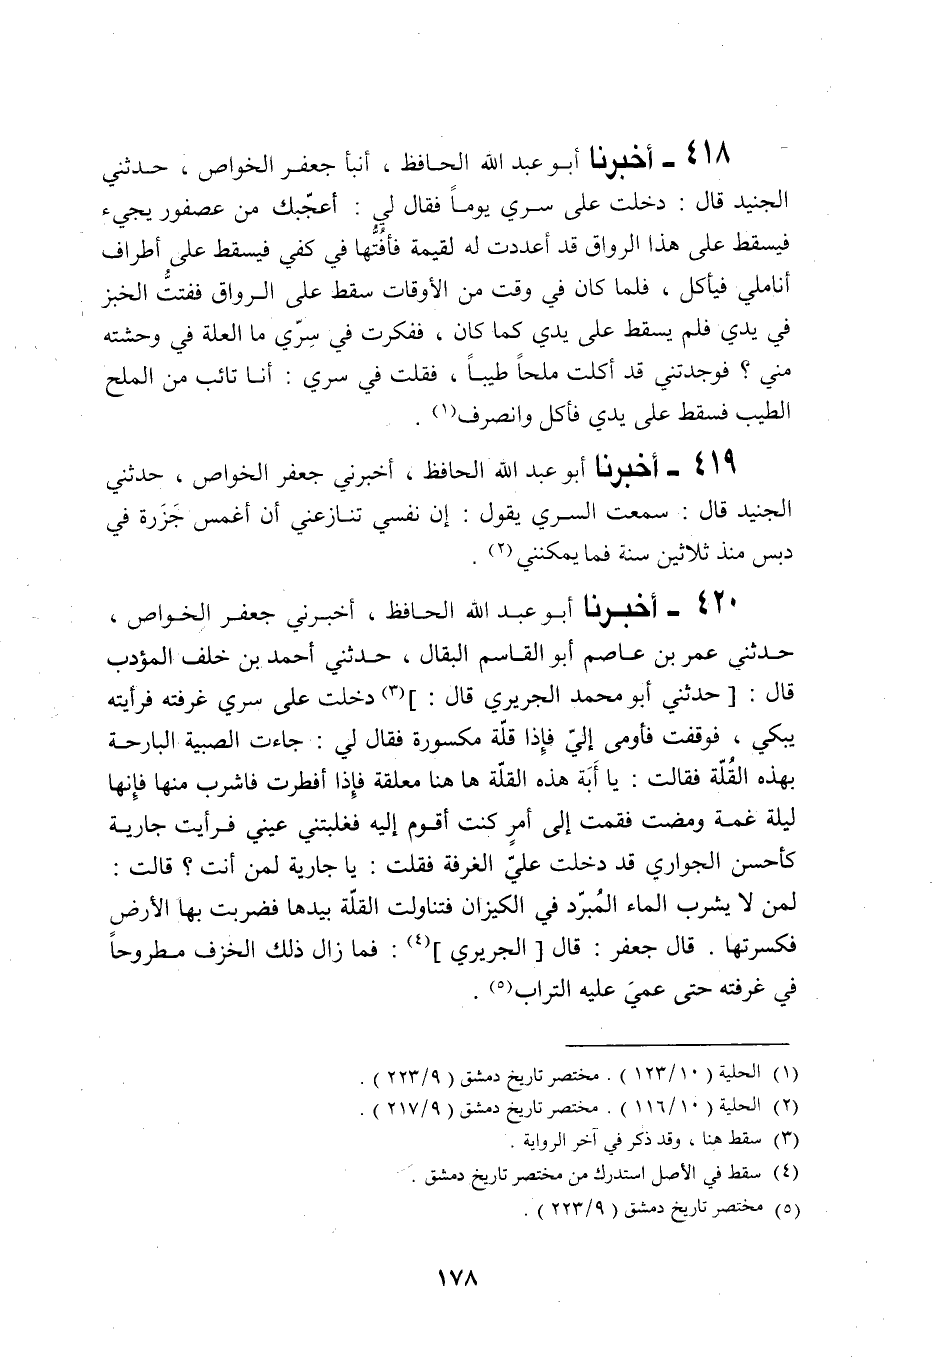 ٤١٨ ـ أخبرنا أبو عبد الله الحافظ ، أنبأ جعفر الخواص ، حدثني
الجنيد قال : دخلت على سري يوماً فقال لي : أعجّبك من عصفور يجيء
فيسقط على هذا الرواق قد أعددت له لقيمة فأفُتُّها في كفي فيسقط على أطراف
أناملي فيأكل ، فلما كان في وقت من الأوقات سقط على الرواق ففتتُّ الخبز
في يدي فلم يسقط على يدي كما كان ، ففكرت في سِرّي ما العلة في وحشته
مني ؟ فوجدتني قد أكلت ملحاً طيباً ، فقلت في سري : أنا تائب من الملح
الطيب فسقط على يدي فأكل وانصرف(١) .
٤١٩ ـ أخبرنا أبو عبد الله الحافظ ، أخبرني جعفر الخواص ، حدثني
الجنيد قال : سمعت السري يقول : إن نفسي تنازعني أن أغمس جَزَرة في
دبس منذ ثلاثين سنة فما يمكنني(٢) .
٤٢٠ ـ أخبرنا أبو عبد الله الحافظ ، أخبرني جعفر الخواص ،
حدثني عمر بن عاصم أبو القاسم البقال ، حدثني أحمد بن خلف المؤدب
قال : [ حدثني أبو محمد الجريري قال : ](٣) دخلت على سري غرفته فرأيته
يبكي ، فوقفت فأومى إليّ فإذا قلّة مكسورة فقال لي : جاءت الصبية البارحة
بهذه القُلّة فقالت : يا أَبَة هذه القلّة ها هنا معلقة فإذا أفطرت فاشرب منها فإنها
ليلة غمة ومضت فقمت إلى أمرٍ كنت أقوم إليه فغلبتني عيني فرأيت جارية
كأحسن الجواري قد دخلت عليّ الغرفة فقلت : يا جارية لمن أنت ؟ قالت :
لمن لا يشرب الماء المُبرّد في الكيزان فتناولت القلّة بيدها فضربت بها الأرض
فكسرتها . قال جعفر : قال [ الجريري ](٤) : فما زال ذلك الخزف مطروحاً
في غرفته حتى عميَ عليه التراب(٥) .
(١) الحلية ( ١٢٣/١٠ ) . مختصر تاريخ دمشق ( ٢٢٣/٩ ) .
(٢) الحلية ( ١١٦/١٠ ) . مختصر تاريخ دمشق ( ٢١٧/٩ ) .
(٣) سقط هنا ، وقد ذكر في آخر الرواية .
(٤) سقط في الأصل استدرك من مختصر تاريخ دمشق .
(٥) مختصر تاريخ دمشق ( ٢٢٣/٩ ) .
١٧٨